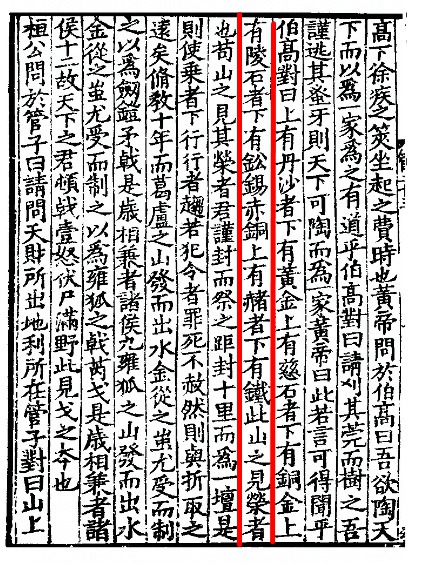 高下徐疾之筴坐起之費時也黃帝問於伯高曰吾欲陶天
下而以爲一家爲之有道乎伯高對曰請刈其莞而樹之吾
謹逃其蚤牙則天下可陶而爲一家黃帝曰此若言可得聞乎
伯高對曰上有丹沙者下有黃金上有慈石者下有銅金上
有陵石者下有鈆錫赤銅上有赭者下有鐵此山之見榮者
也苟山之見其榮者君謹封而祭之距封十里而爲一壇是
則使乘者下行行者趨若犯令者罪死不赦然則與折取之
遠矣脩教十年而葛盧之山發而出水金從之蚩尤受而制
之以爲劒鎧矛戟是歲相兼者諸侯九雍狐之山發而出水
金從之蚩尤受而制之以爲雍狐之戟芮戈是歲相兼者諸
侯十二故天下之君頓戟壹怒伏尸滿野此見戈之本也
桓公問於管子曰請問天財所出地利所在管子對曰山上